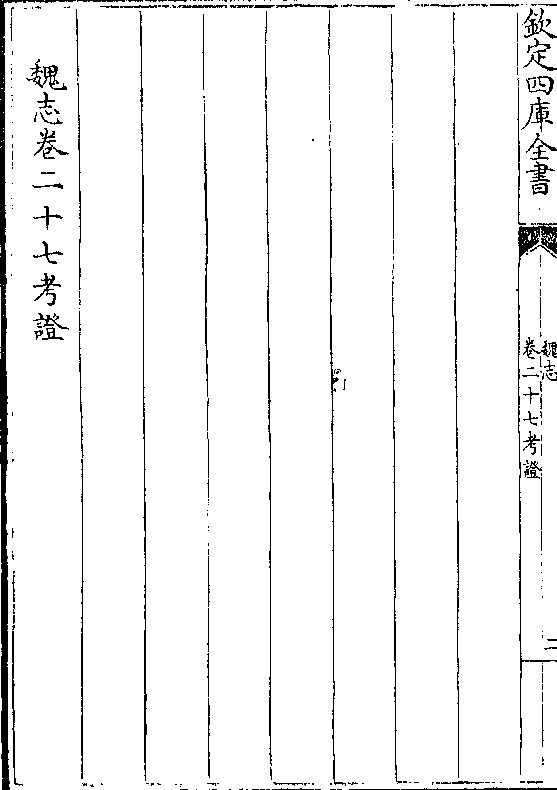 欽定四庫全書
魏志
卷二十七考證
二
魏志卷二十七考證